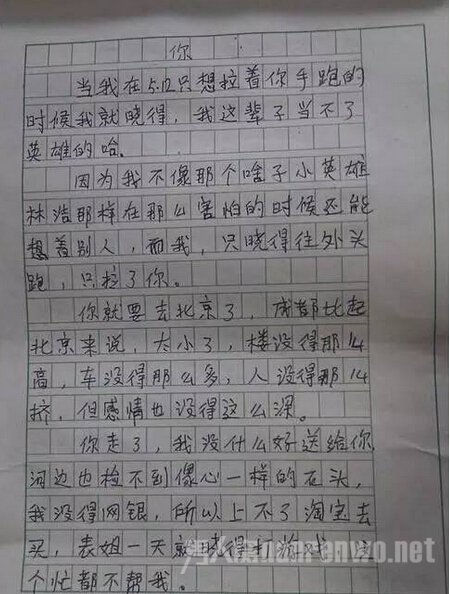 你
当我在5.12只想拉着你手跑的
时候我就晓得，我这辈子当不了
英雄的哈。
因为我不像那个啥子小英雄
林浩那样在那么害怕的时候还能
想着别人，而我，只晓得往外头
跑，只拉了你。
你就要去北京了，成都比起
北京来说，太小了，楼没得那么
高，车没得那么多，人没得那么
挤，但感情也没得这么深。
你走了，我没什么好送给你
河边也捡不到像心一样的石头，
我没得网银，所以上不了淘宝去
买，表姐一天就晓得打游戏，
个忙都不帮我。
renwo.net